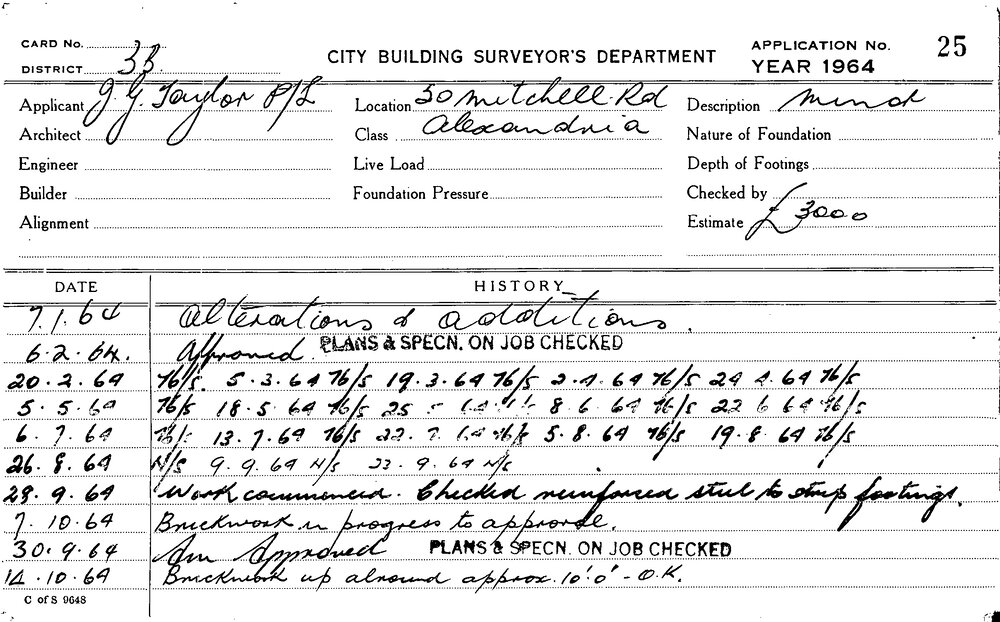 CARD No.
DISTRICT 3B
CITY BUILDING SURVEYOR'S DEPARTMENT
APPLICATION No. 25
YEAR 1964
Applicant J. G. Taylor P/L
Location 30 Mitchell Rd
Description Minor
Architect
Class Alexandria
Nature of Foundation
Engineer
Live Load
Depth of Footings
Builder
Foundation Pressure
Checked by
Alignment
Estimate £3000
DATE HISTORY
7.1.64 Alterations & additions.
6.2.64. Approved PLANS & SPECN. ON JOB CHECKED
20.2.64 N/S. 5.3.64 N/S 19.3.64 N/S 2.4.64 N/S 24 4.64 N/S
5.5.64 N/S 18.5.64 N/S 25 N/S 8.6.64 N/S 22 6 64 N/S
6.7.64 N/S 13.7.64 N/S 22.7.64 N/S 5.8.64 N/S 19.8.64 N/S
26.8.64 N/S 9.9.64 N/S 23.9.64 N/S
29.9.64 Work commenced. Checked reinforced steel to strip footings.
7.10.64 Brickwork in progress to approval.
30.9.64 Am Approved PLANS & SPECN. ON JOB CHECKED
14.10.64 Brickwork up alround approx. 10'.0" - O.K.
C of S 9648